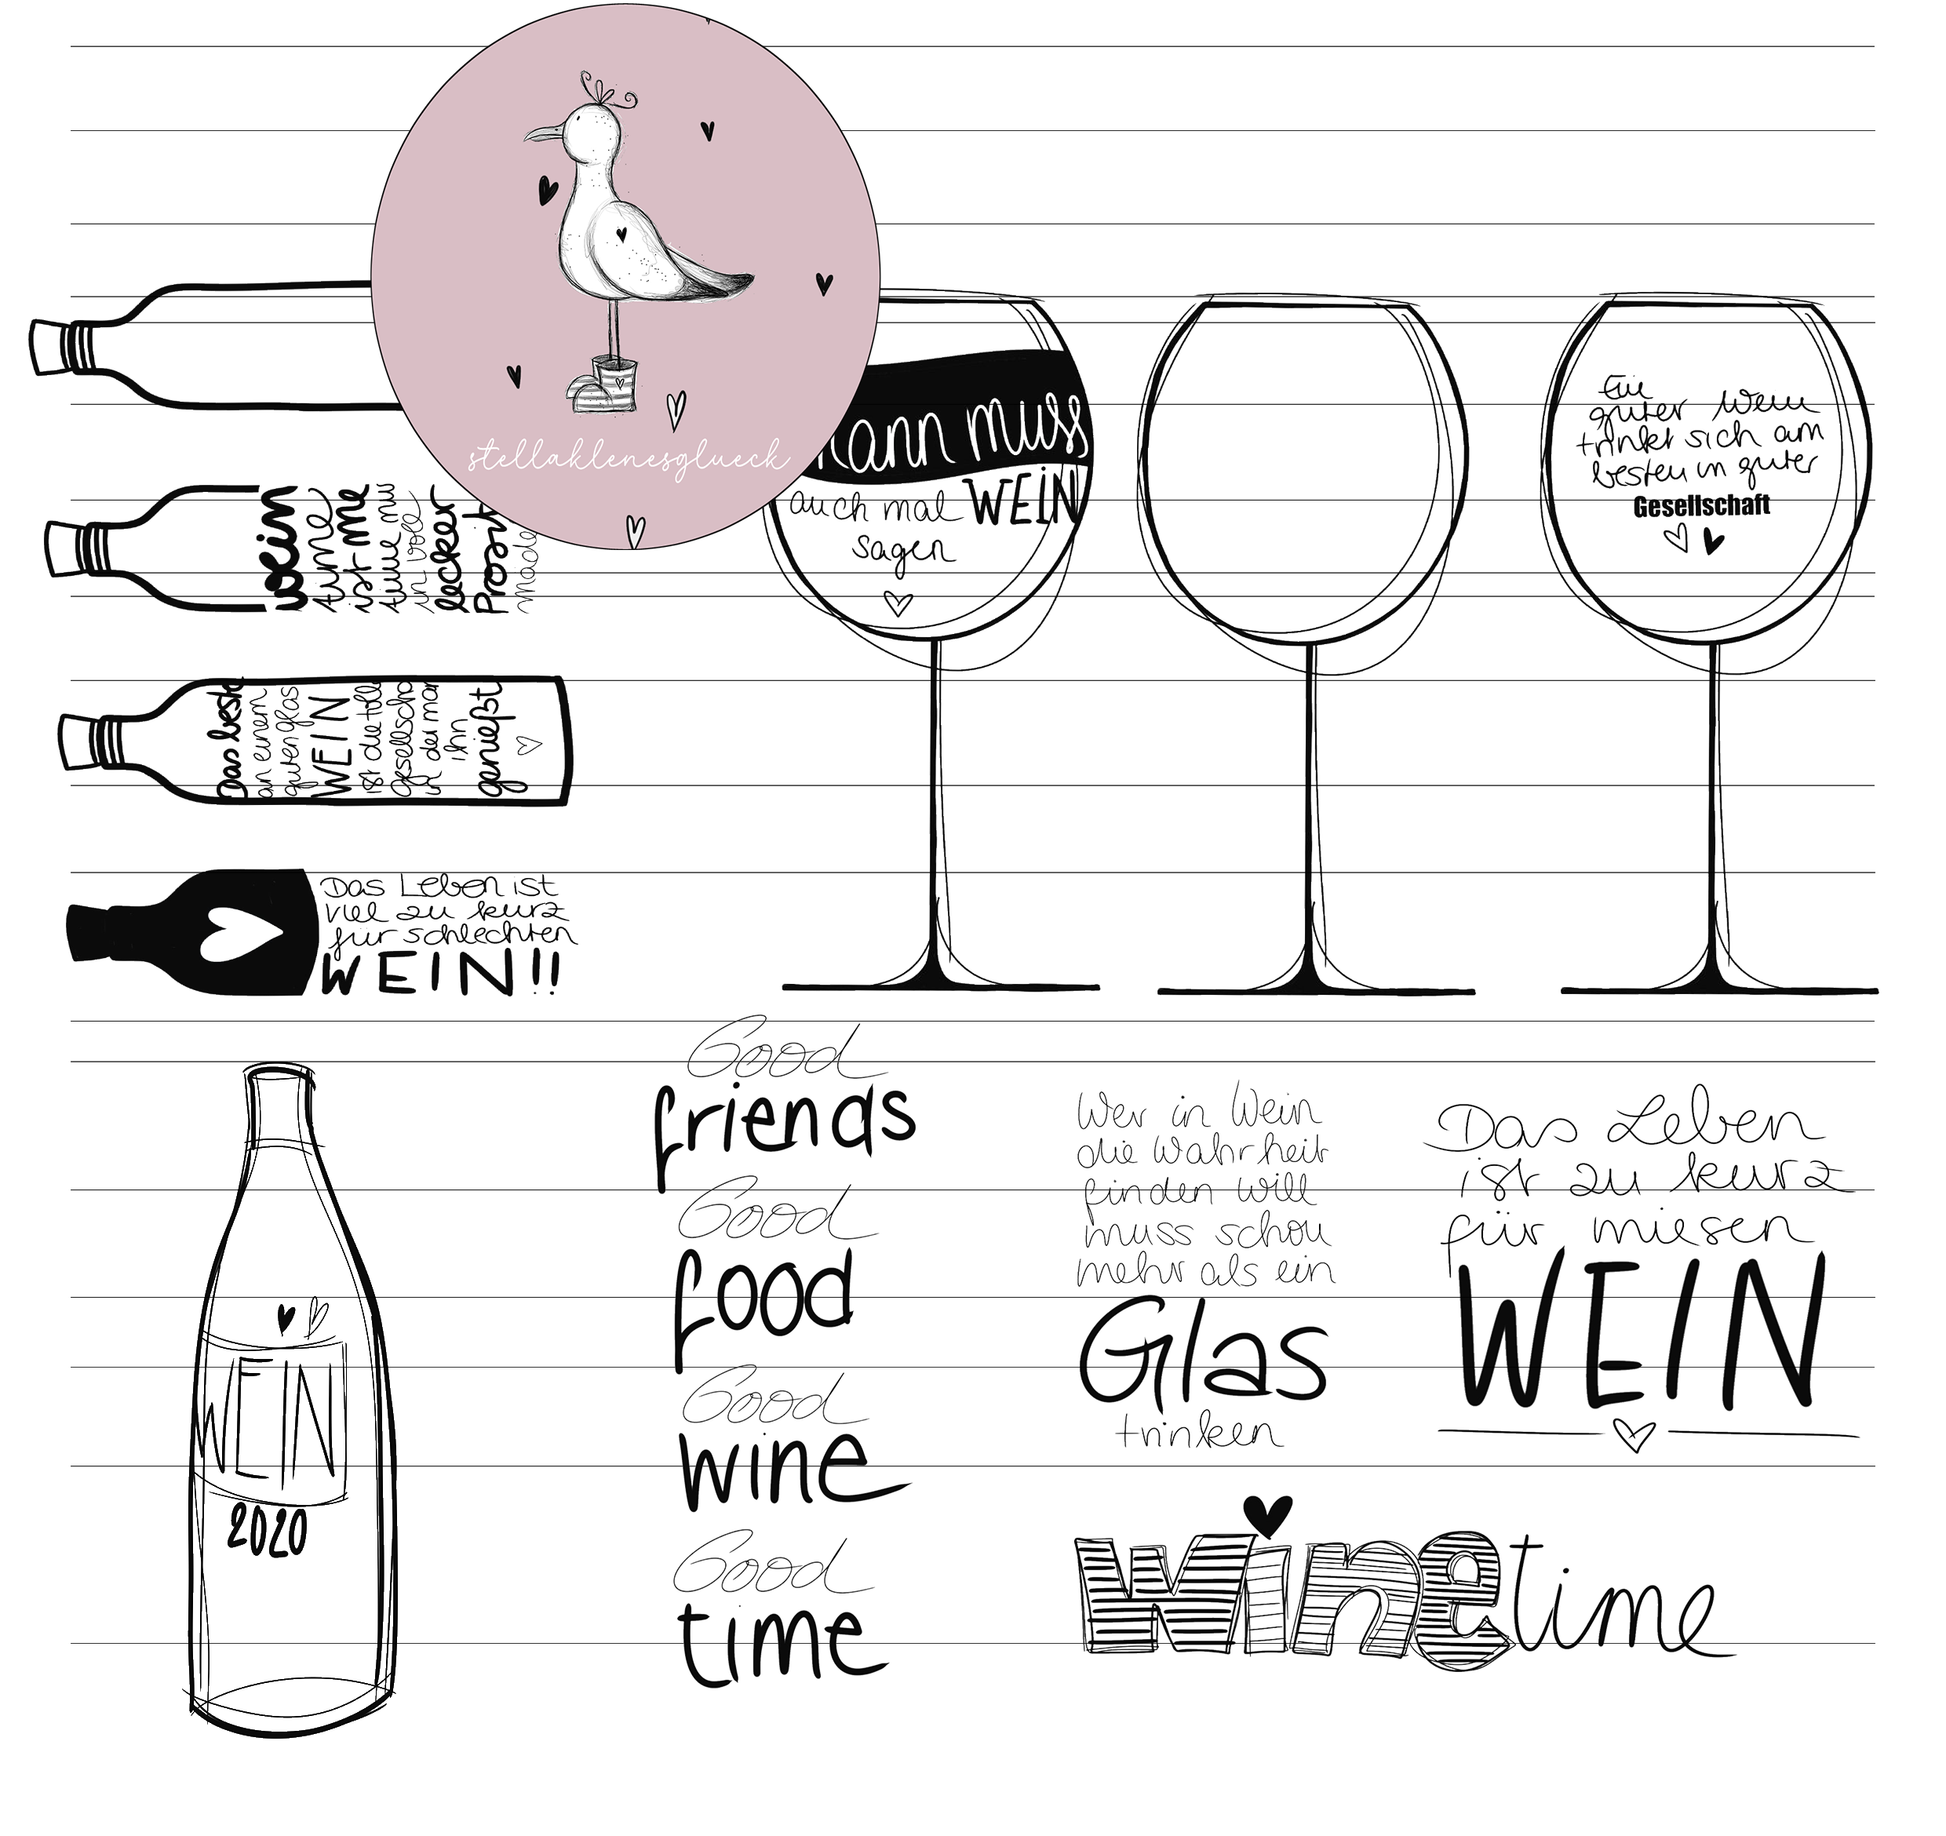 stellaklenesglueck
ann muss
auch mal WEIN
sagen
Ein
guter Wein
trinkt sich am
besten in guter
Gesellschaft
wein
time
ist me
time mit
in vole
lecker
Prosit
made
Das beste
an einem
guten glas
WEIN
ist die tolle
gesellscha
in der man
ihn
genießt
Das Leben ist
viel zu kurz
für schlechten
WEIN!!
WEIN
2020
Good
friends
Good
food
Good
wine
Good
time
Wer in Wein
die Wahrheit
finden will
muss schon
mehr als ein
Glas
trinken
Das Leben
ist zu kurz
für miesen
WEIN
winetime